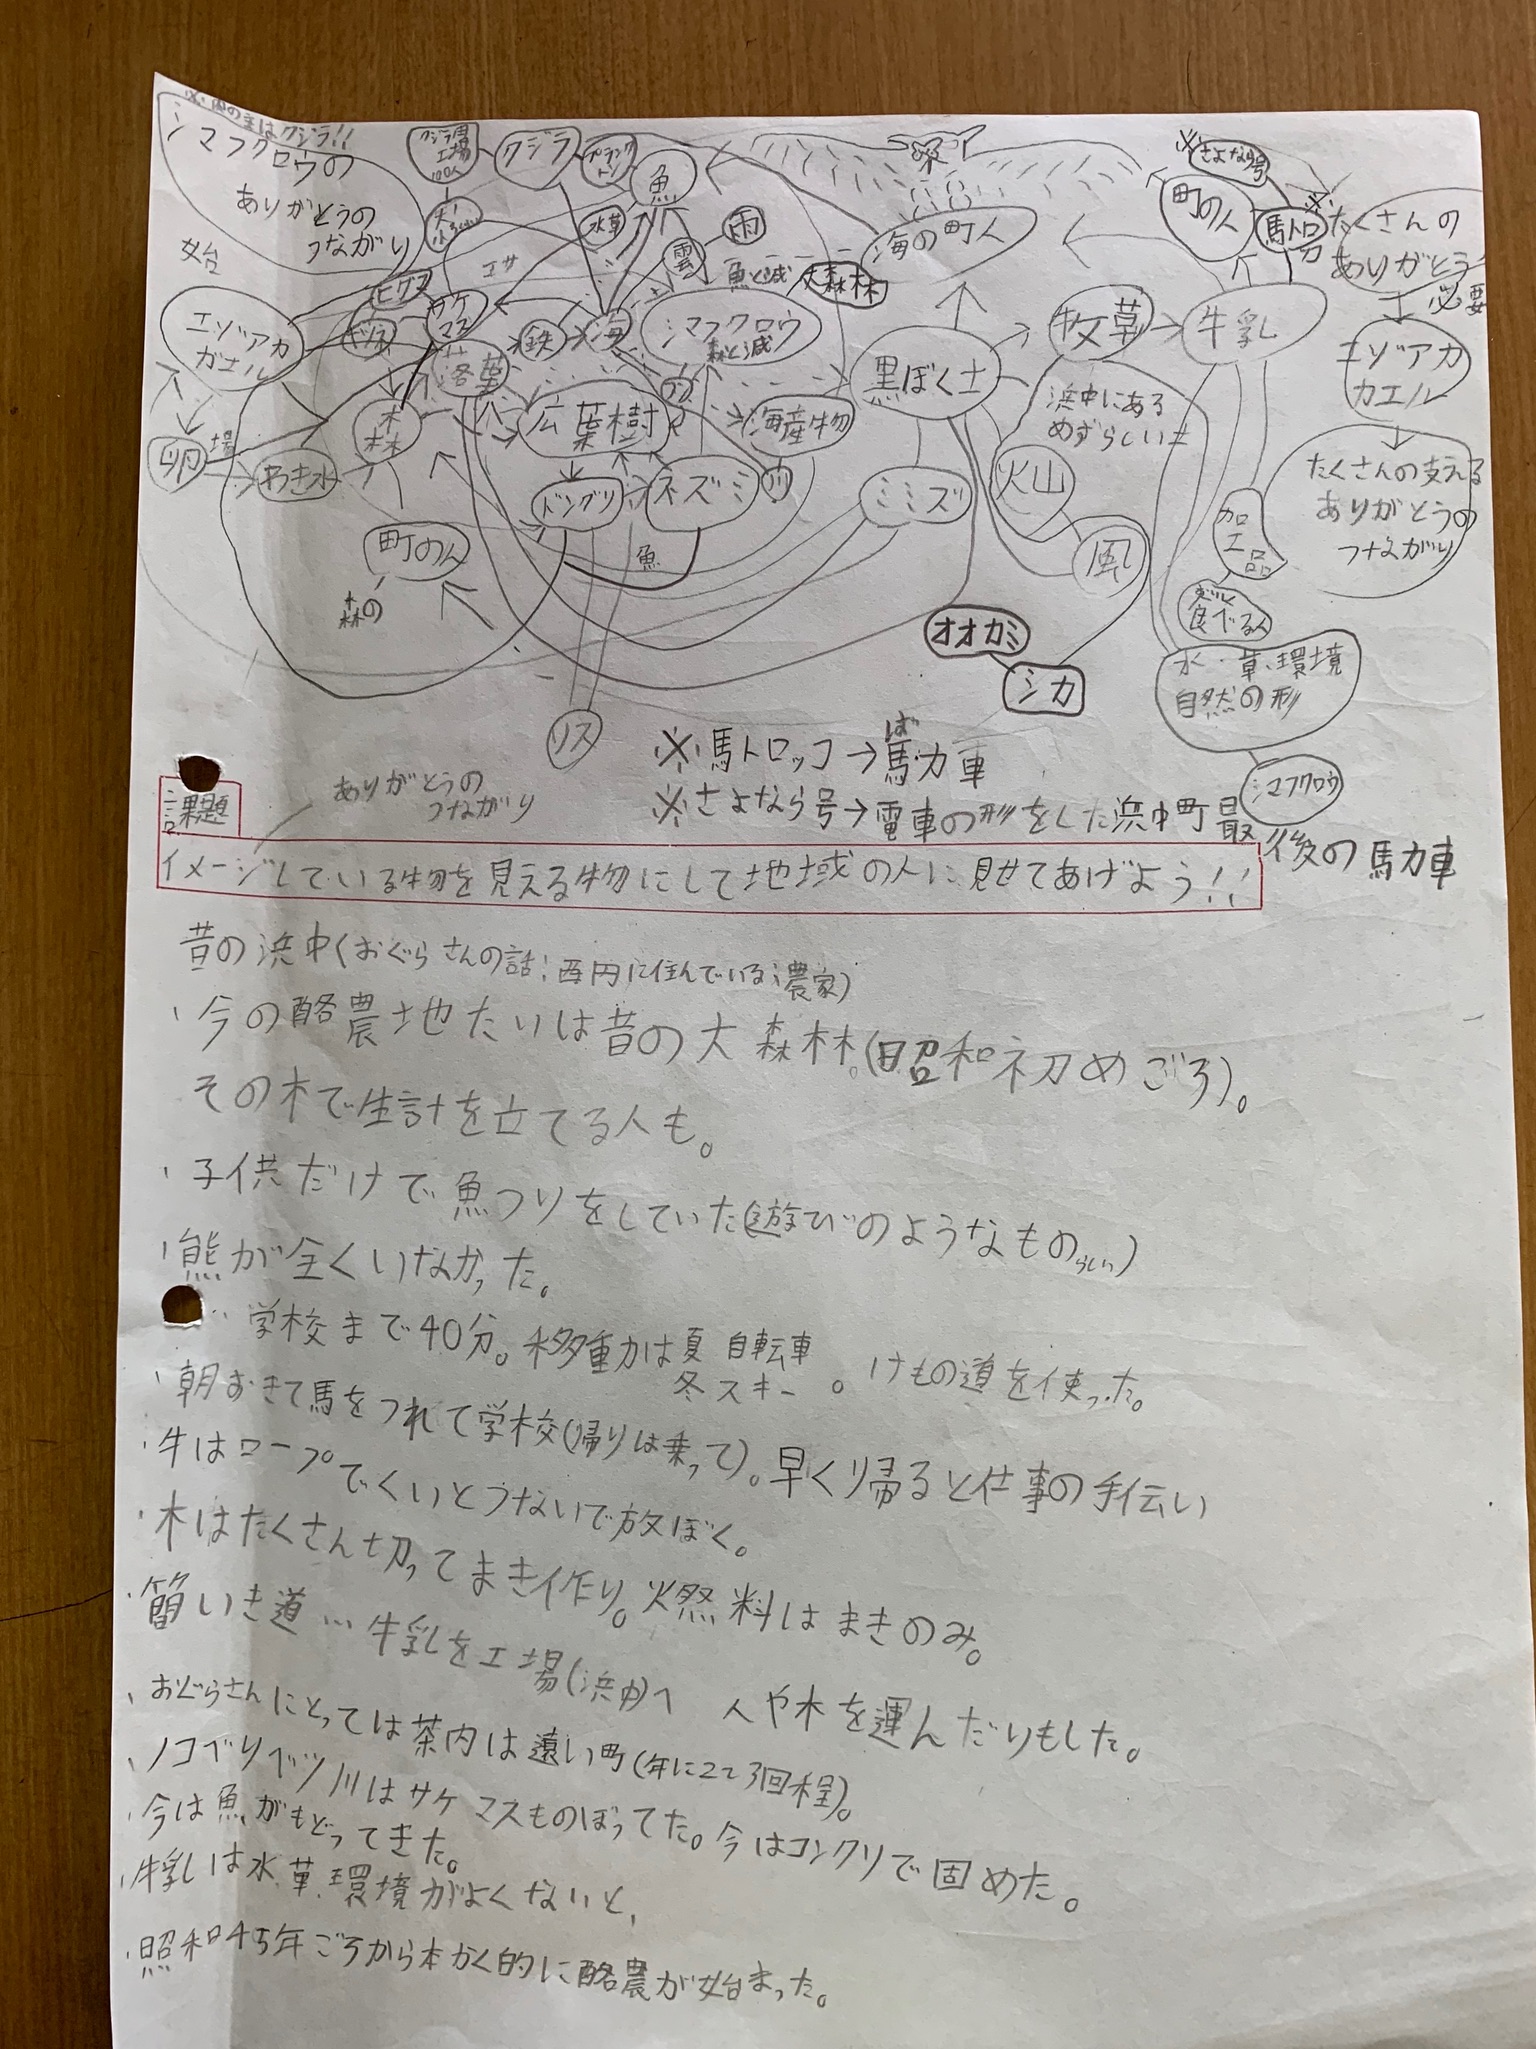 ※海の主はクジラ!!
シマフクロウの
ありがとうの
つながり
始
クジラ
工場
100人
クジラ
プランク
トン
魚
水草
雨
雲
海の町人
※さよなら号
町の人
馬トロ
※たくさんの
ありがとう
必要
エゾアカ
ガエル
ヒグマ
キツネ
サケ
マス
エサ
落葉
鉄
海
魚と減
大森林
シマフクロウ
森と減
黒ぼく土
牧草
牛乳
エゾアカ
カエル
卵
場
わき水
森
広葉樹
海産物
浜中にある
めずらしい土
火山
風
ドングリ
ネズミ
川
ミミズ
魚
町の人
森の
加工品
食べる人
たくさんの支える
ありがとうの
つながり
オオカミ
シカ
水・草・環境
自然の形
シマフクロウ
リス
※馬トロッコ→馬力車
ば
※さよなら号→電車の形をした浜中町最後の馬力車
ありがとうの
つながり
課題
イメージしている物を見える物にして地域の人に見せてあげよう!!
昔の浜中(おぐらさんの話:西円に住んでいる農家)
・今の酪農地たいは昔の大森林。(昭和初めごろ)。
その木で生計を立てる人も。
・子供だけで魚つりをしていた(遊びのようなものらしい)
・熊が全くいなかった。
・学校まで40分。移動は夏 自転車
冬スキー 。けもの道を使った。
・朝おきて馬をつれて学校(帰りは乗って)。早く帰ると仕事の手伝い
・牛はロープでくいとうないで放ぼく。
・木はたくさん切ってまき作り。燃料はまきのみ。
・簡いき道…牛乳を工場(浜中)へ 人や木を運んだりもした。
・おぐらさんにとっては茶内は遠い町(年に2て3回程)。
・ノコベリベツ川はサケ マスものぼってた。今はコンクリで固めた。
・今は魚がもどってきた。
・牛乳は水、草、環境がよくないと、
・昭和45年ごろから本かく的に酪農が始まった。